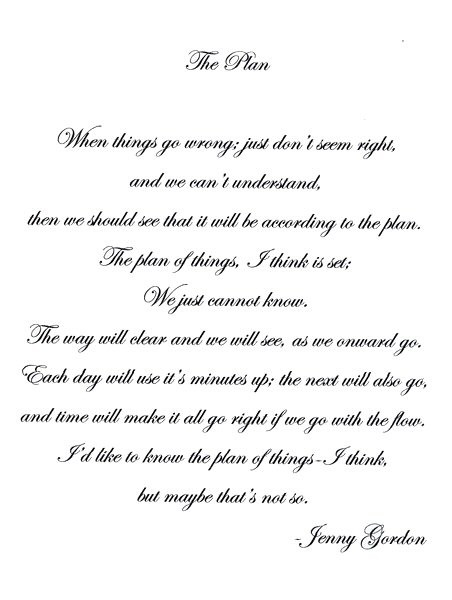 The Plan
When things go wrong; just don't seem right,
and we can't understand,
then we should see that it will be according to the plan.
The plan of things, I think is set;
We just cannot know.
The way will clear and we will see, as we onward go.
Each day will use it's minutes up; the next will also go,
and time will make it all go right if we go with the flow.
I'd like to know the plan of things-I think,
but maybe that's not so.
-Jenny Gordon